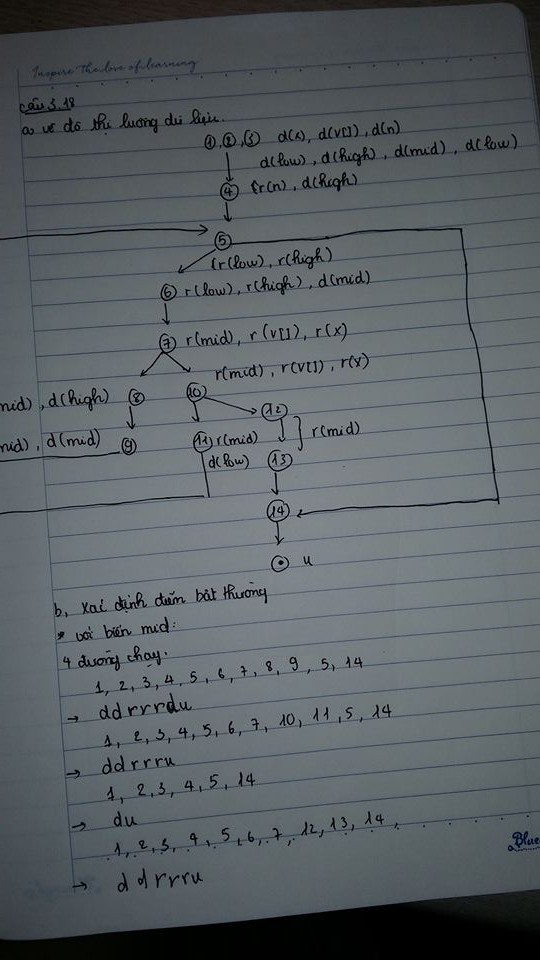 Inspire The love of learning
Câu 3.18
a, vẽ đồ thị luồng dữ liệu.
①, ②, ③ d(x), d(v[]), d(n)
d(low), d(high), d(mid), d(low)
④ {r(n), d(high)
⑤
{r(low), r(high)
⑥ r(low), r(high), d(mid)
⑦ r(mid), r(v[]), r(x)
r(mid), r(v[]), r(x)
mid), d(high) ⑧ ⑩ ⑫
mid), d(mid) ⑨ ⑪ r(mid) } r(mid)
d(low) ⑬
⑭
u
b, Xác định điểm bất thường
* với biến mid:
4 đường chạy.
1, 2, 3, 4, 5, 6, 7, 8, 9, 5, 14
→ ddrrrdu
1, 2, 3, 4, 5, 6, 7, 10, 11, 5, 14
→ ddrrru
1, 2, 3, 4, 5, 14
→ du
1, 2, 3, 4, 5, 6, 7, 12, 13, 14,
→ ddrrru
Blue